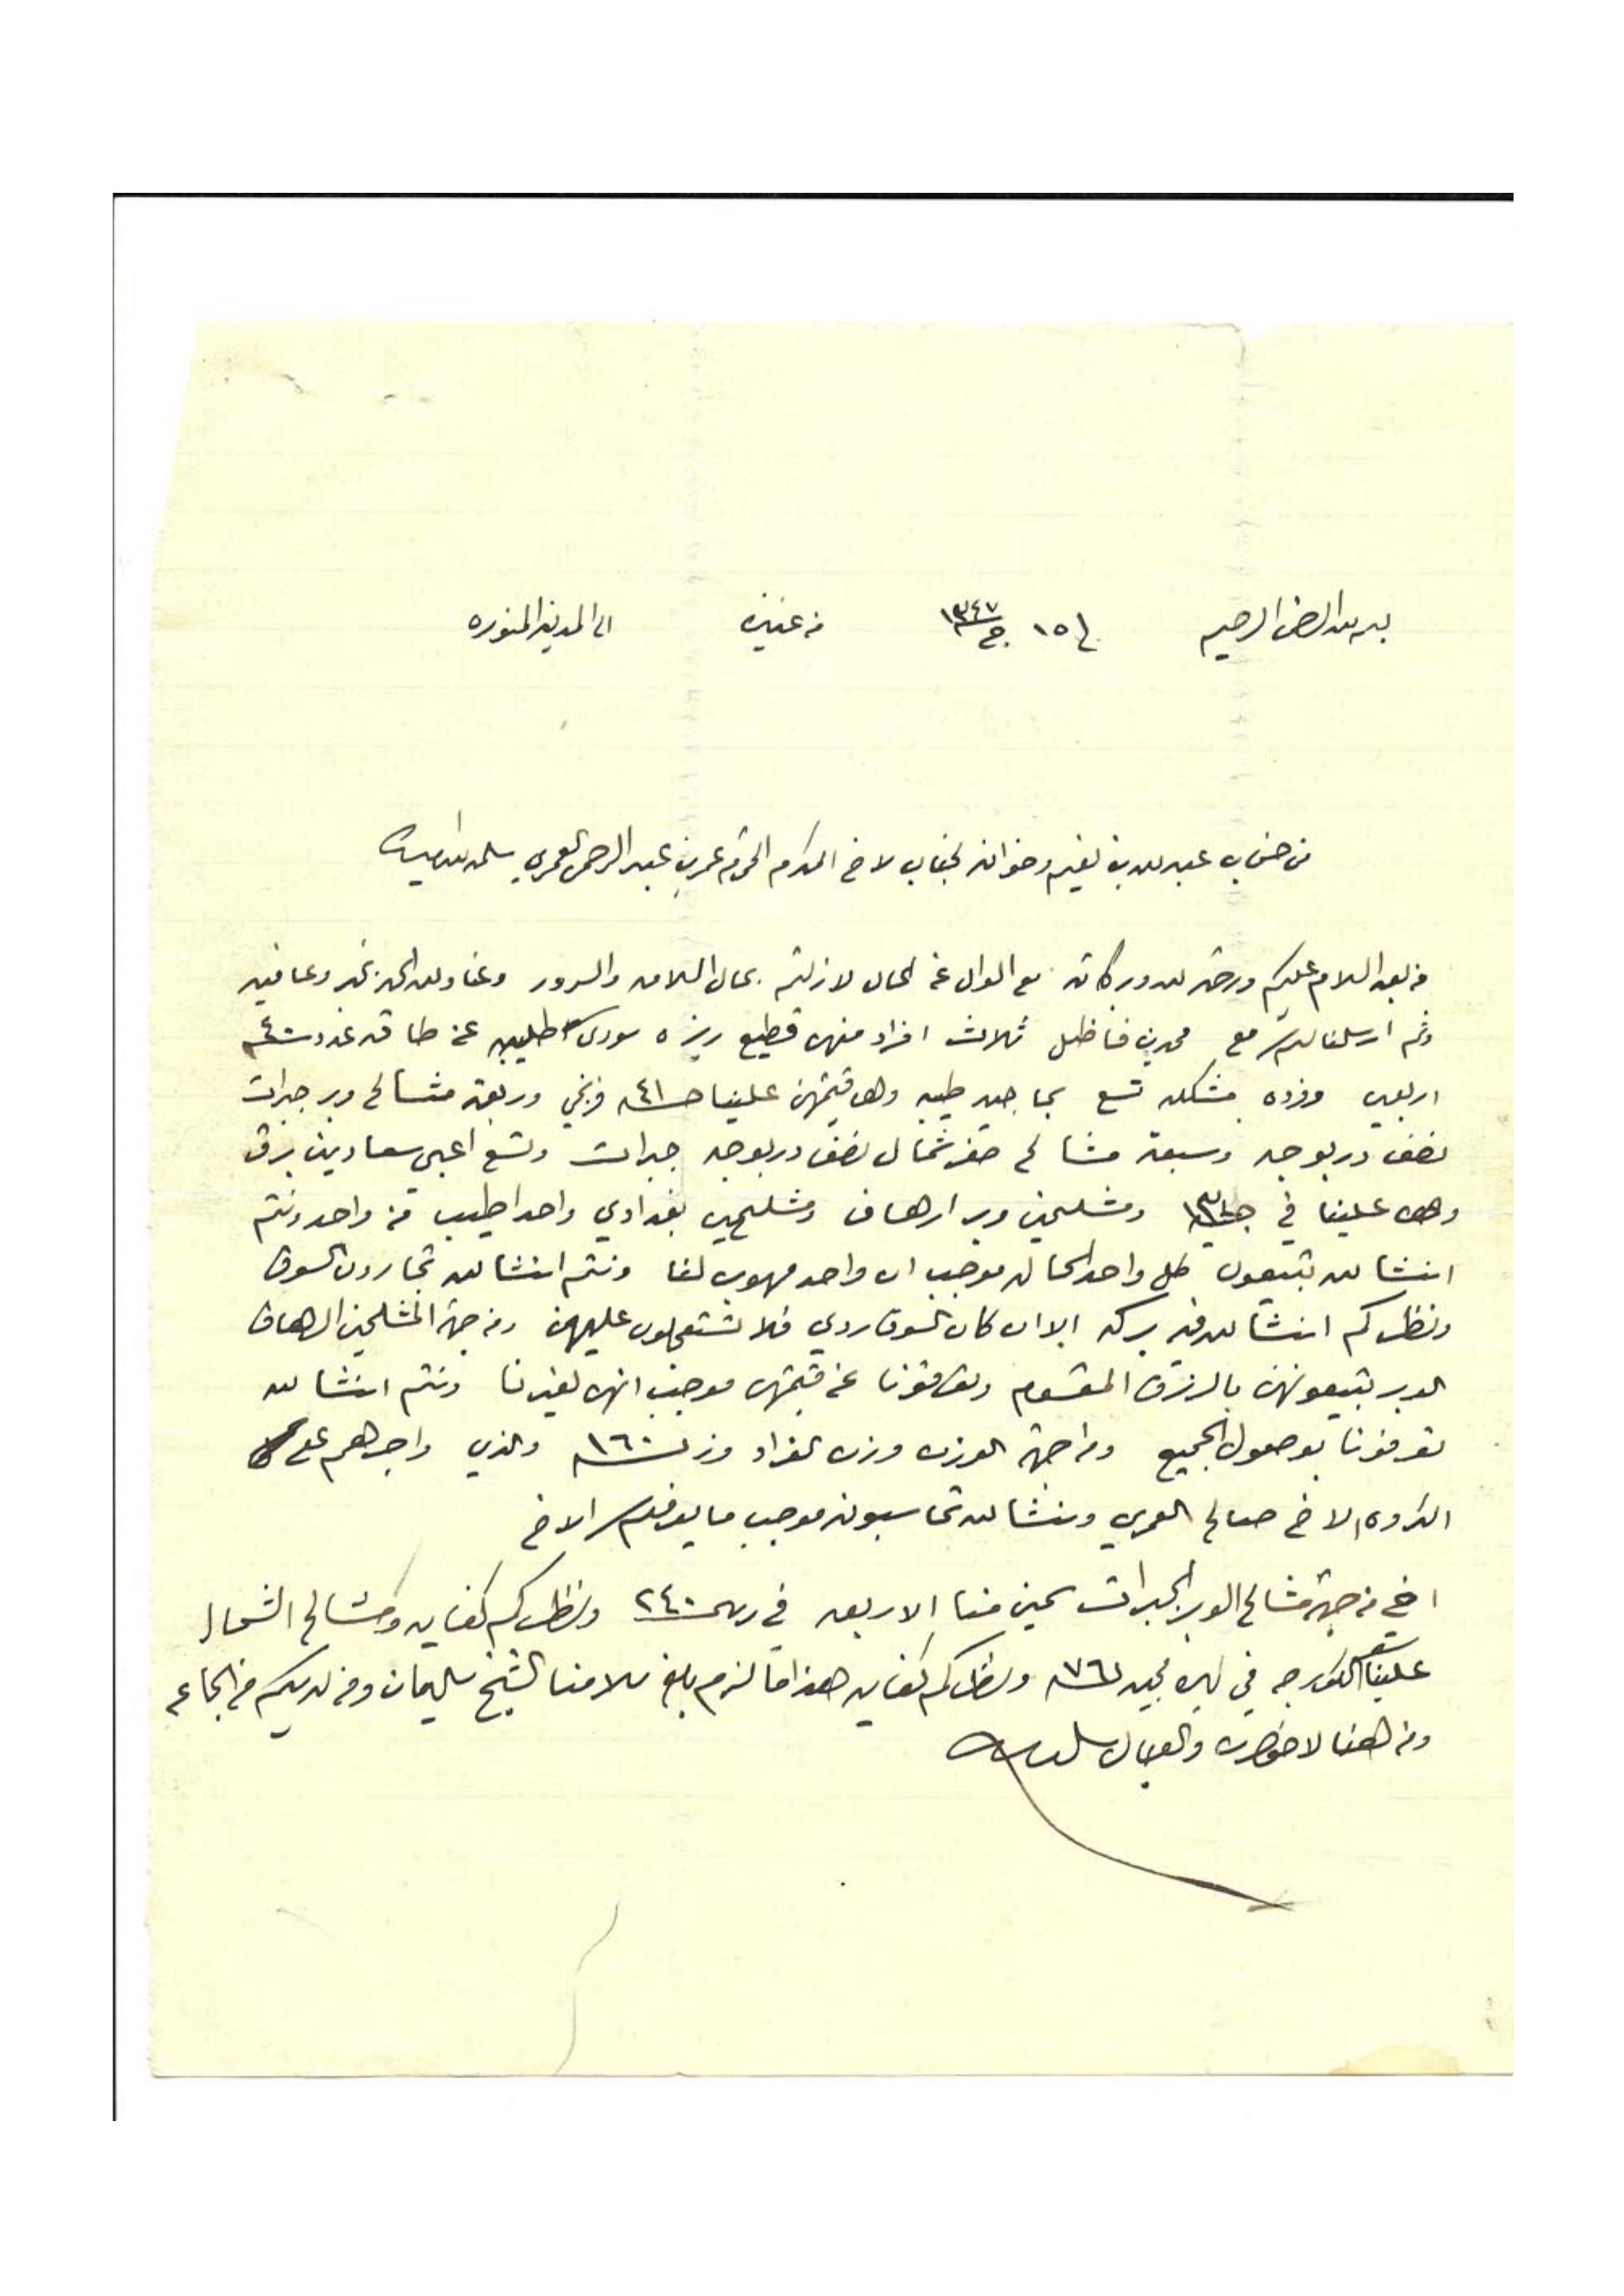 بسم الله الرحمن الرحيم في ١٥ ج ١٣٤٧ من عنيزه الى المدينة المنوره
من جناب عبدالله بن نعيم واخوانه لجناب الاخ المكرم المحترم عمر بن عبدالرحمن العمري سلمه الله امين
من بعد السلام عليكم ورحمة الله وبركاته مع السوال عن الحال لازلتم بحال السلامه والسرور وعنا ولله الحمد بخير وعافيه
وثم ارسلنا لكم مع محمد بن فاضل ثلاث افراد منهن قطيع ريزه سوري طليبه عن طاقه عدد ٤٠
اربعين وفرده مشكله تسع بجاجيد طيبه وهن قيمتهن علينا ٤١ فرنجي وربعة مشالح وبر جبرات
نصف دربوجه وسبعة مشالح صفر شمال نصف دربوجه جبرات وتسع اعبي سعادين برق
وهن علينا في ومشلحين وبر ارهاف ومشلحين بغدادي واحد اطيب من واحد ونتم
انشالله تبيعون كل واحد الحاله موجب ان واحد مهوب لنا ونتم انشالله تجارون السوق
ونظركم انشالله فيه بركه الا ان كان السوق ردي فلا تستعجلون عليهن ومن جهة المشلحين الرهاف
الوبر تبيعونهن بالرزق المقسوم وتعرفونا عن قيمتهن موجب انهن لغيرنا ونتم انشالله
تعرفونا بوصول الجميع ومن جهة الوزن وزن الفراد وزنه ١٦٠ والذي واجرهم على
الكروه الاخ صالح العمري ونشالله تحاسبونه موجب ما يعرفكم الاخ
اخي من جهة مشالح الوبر الجبرات سمين منا الاربعه في ٢٤٠ ونظركم كفايه ومشالح الشمال
علينا سعر الكورجه في ليره مجيديه ٧٦ ونظركم كفايه هذا مالزم بلغ سلامنا الشيخ سليمان ومن لديكم من الجماعه
ومن هنا الاخوان والعيال يسلمون